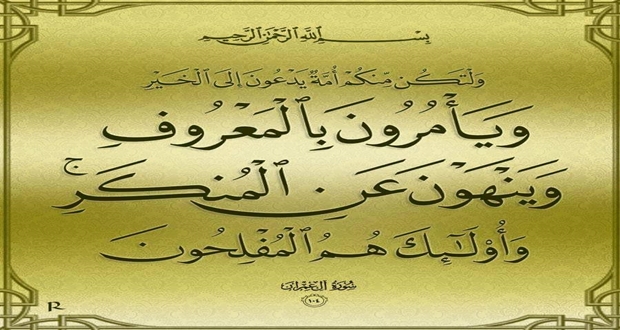 بِسْمِ اللَّهِ الرَّحْمَٰنِ الرَّحِيمِ
وَلْتَكُن مِّنكُمْ أُمَّةٌ يَدْعُونَ إِلَى الْخَيْرِ
وَيَأْمُرُونَ بِالْمَعْرُوفِ
وَيَنْهَوْنَ عَنِ الْمُنكَرِ ۚ
وَأُولَٰئِكَ هُمُ الْمُفْلِحُونَ
سورة آل عمران
١٠٤
R